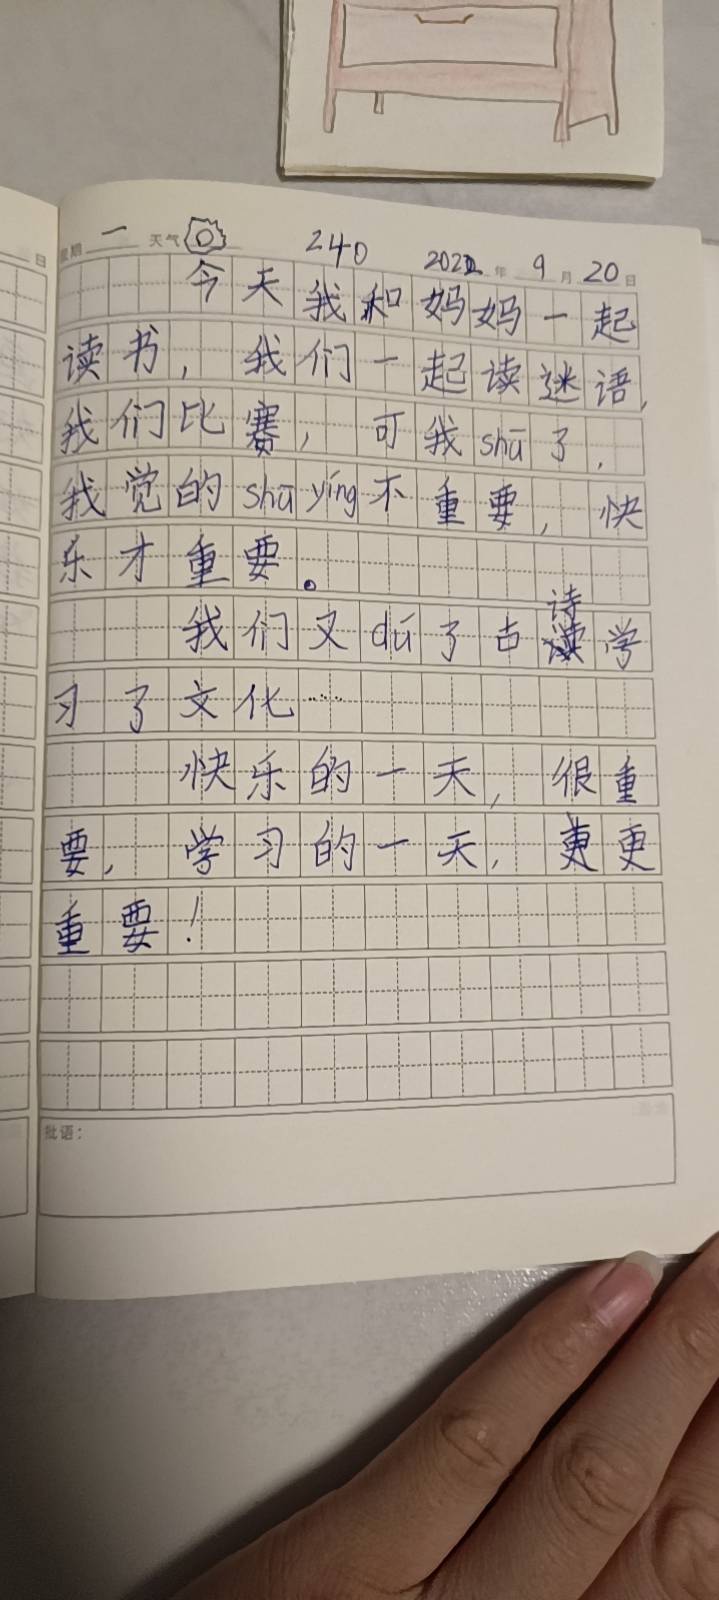 日
星期 一 天气 240 2021 年 9 月 20 日
今天我和妈妈一起
读书，我们一起读迷语，
我们比赛，可我shū了，
我觉的shū yíng不重要，快
乐才重要。
我们又dú了古诗学
习了文化……
快乐的一天，很重
要，学习的一天，更更
重要！
批语：